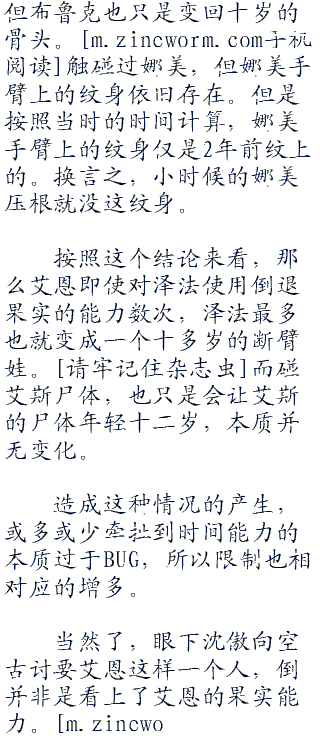 但布鲁克也只是变回十岁的
骨头。[m.zincworm.com手机
阅读]触碰过娜美，但娜美手
臂上的纹身依旧存在。但是
按照当时的时间计算，娜美
手臂上的纹身仅是2年前纹上
的。换言之，小时候的娜美
压根就没这纹身。
按照这个结论来看，那
么艾恩即使对泽法使用倒退
果实的能力数次，泽法最多
也就变成一个十多岁的断臂
娃。[请牢记住杂志虫]而碰
艾斯尸体，也只是会让艾斯
的尸体年轻十二岁，本质并
无变化。
造成这种情况的产生，
或多或少牵扯到时间能力的
本质过于BUG，所以限制也相
对应的增多。
当然了，眼下沈傲向空
古讨要艾恩这样一个人，倒
并非是看上了艾恩的果实能
力。[m.zincwo